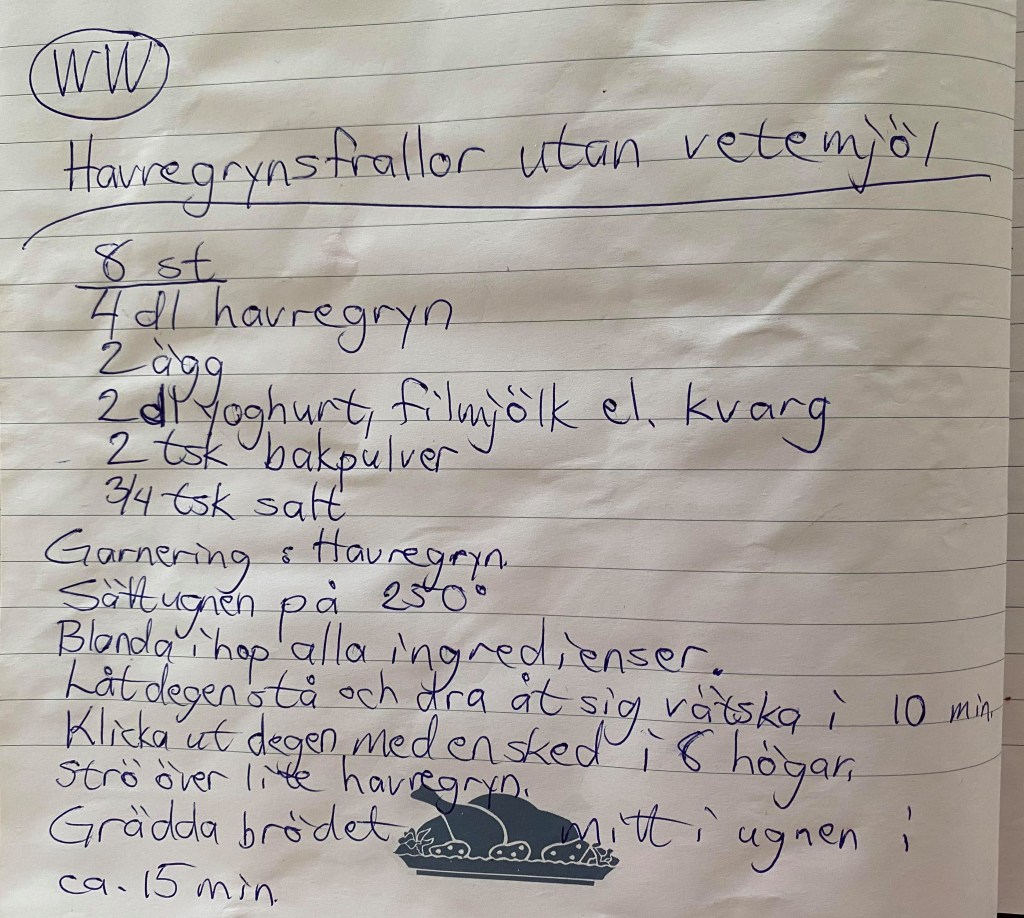 WW
Havregrynsfrallor utan vetemjöl
8 st
4 dl havregryn
2 ägg
2 dl yoghurt, filmjölk el. kvarg
2 tsk bakpulver
3/4 tsk salt
Garnering: Havregryn.
Sätt ugnen på 250°
Blanda ihop alla ingredienser.
Låt degen stå och dra åt sig vätska i 10 min.
Klicka ut degen med en sked i 8 högar,
strö över lite havregryn.
Grädda brödet mitt i ugnen i
ca. 15 min.